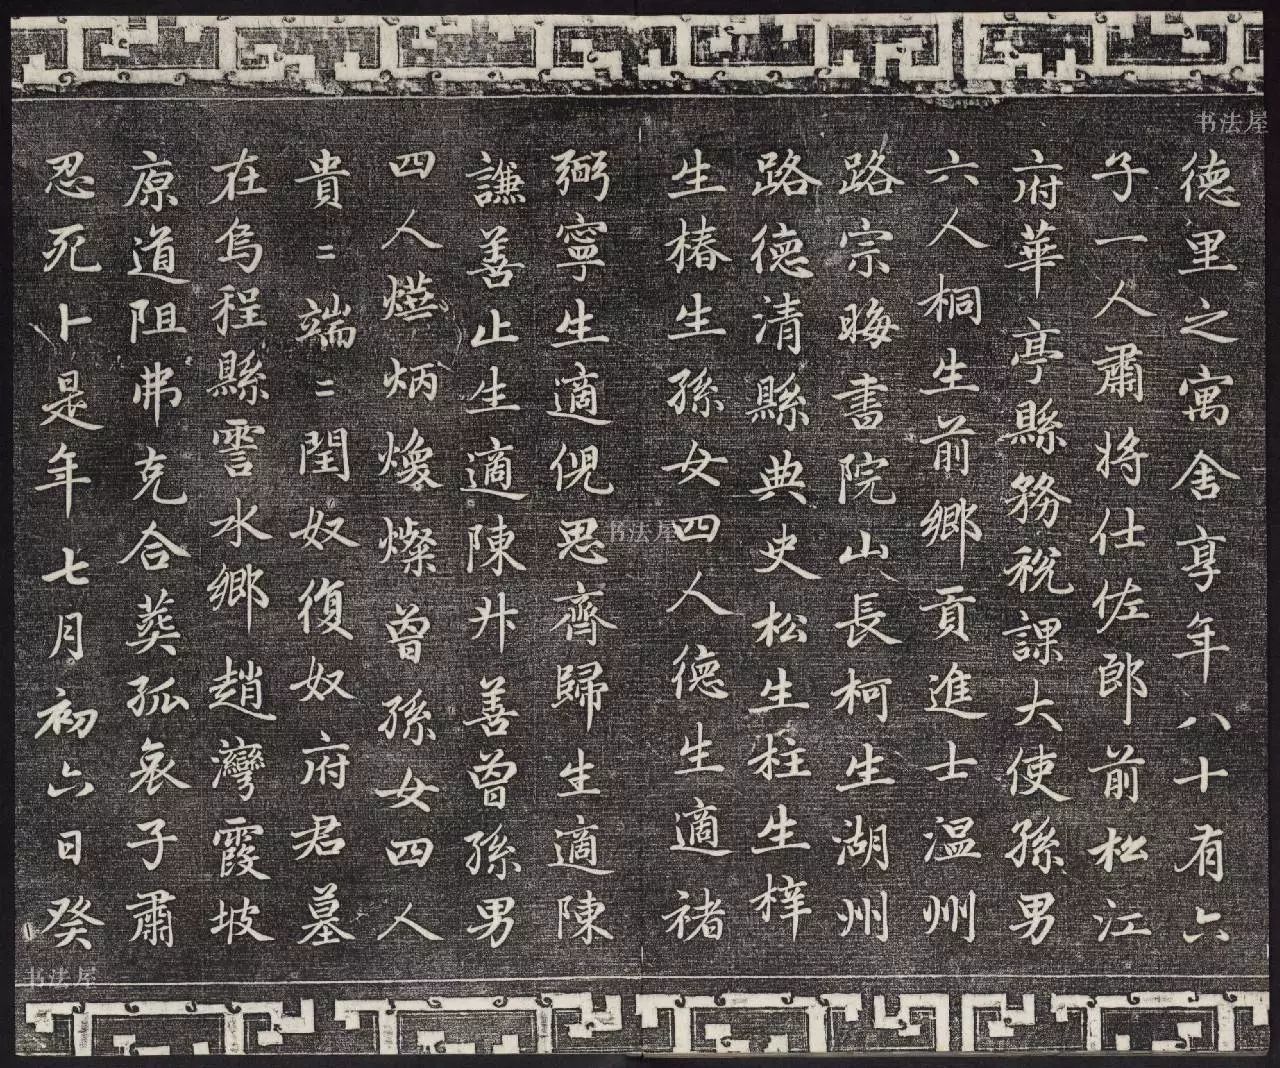 德里之寓舍享年八十有六
子一人肅将仕佐郎前松江
府華亭縣務稅課大使孫男
六人桐生前鄉貢進士温州
路宗晦書院山長柯生湖州
路德清縣典史松生柱生梓
生椿生孫女四人德生適褚
弼寧生適倪思齊歸生適陳
謙善止生適陳廾善曾孫男
四人炳燦曾孫女四人
貴〻端〻閏奴復奴府君墓
在烏程縣霅水鄉趙灣霞坡
原道阻弗克合葬孤哀子肅
忍死卜是年七月初六日癸
书法屋
书法屋
书法屋